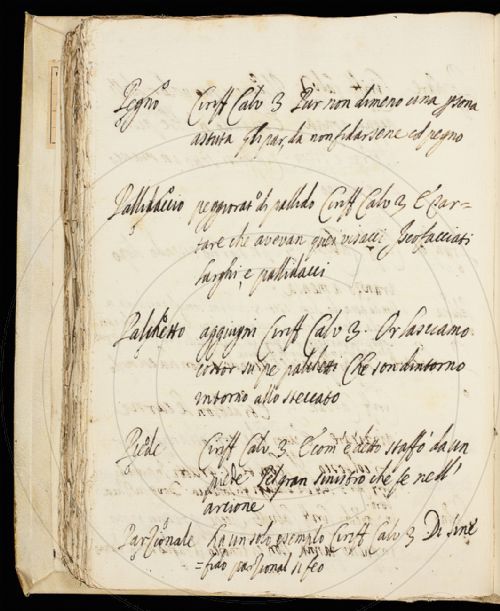 Pegno Ciriff Calv 3 Pur non dimeno una psona
astuta gli par, da non fidarsene col pegno
Pallidaccio peggiorat.o di pallido Ciriff Calv 3 E Tar=
tare che avevan visacci
larghi, e pallidacci
Palchetto aggiugni Ciriff Calv 3. Or lasciamo
costor su pe palchetti Che son dintorno
intorno allo steccato
Piede Ciriff Calv. 3 E com' è detto staffò da un
piede Pel gran sinistro che fe nell'
arcione
Parzionale Ha un solo esempio Ciriff Calv 3 Di Sine
= parzional si feo